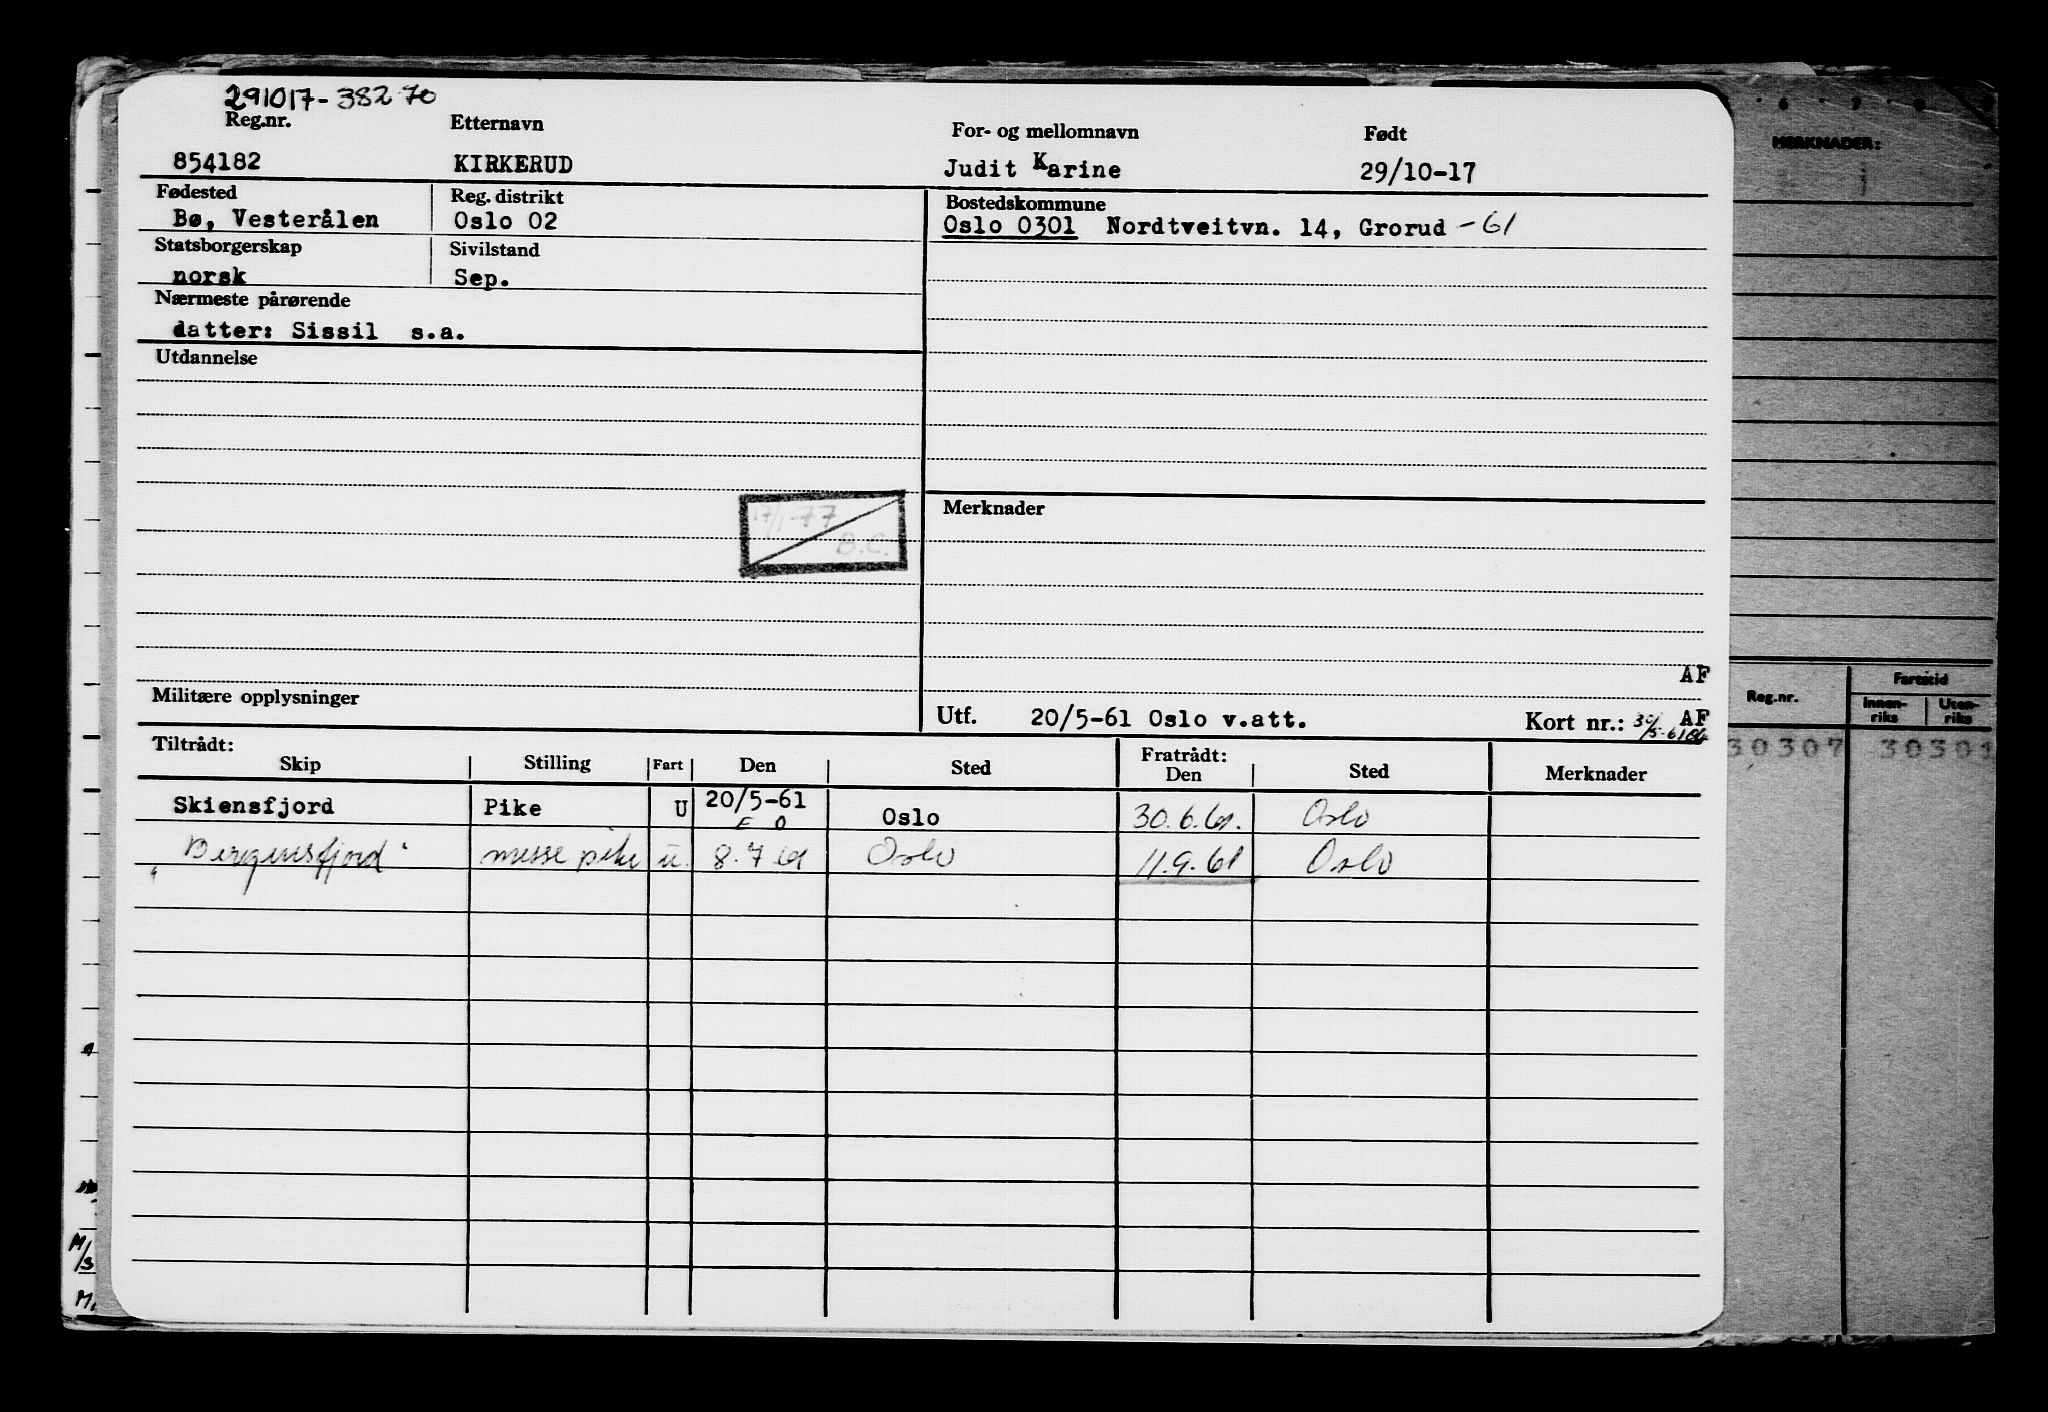 291017-38270
Reg.nr. Etternavn For- og mellomnavn Født
854182 KIRKERUD Judit Karine 29/10-17
Fødested Reg. distrikt Bostedskommune
Bø, Vesterålen Oslo 02 Oslo 0301 Nordtveitvn. 14, Grorud -61
Statsborgerskap Sivilstand
norsk Sep.
Nærmeste pårørende
datter: Sissil s.a.
Utdannelse
17/1-77
B.C.
Merknader
AF
Militære opplysninger
Utf. 20/5-61 Oslo v.att. Kort nr.: 30/5-61 AF
Tiltrådt: Fratrådt:
Skip Stilling Fart Den Sted Den Sted Merknader
Skiensfjord Pike U 20/5-61 Oslo 30.6.61. Oslo
E O
"Bergensfjord" messe pike u. 8.7 61 Oslo 11.9.61 Oslo
6 7 8 9
MERKNADER:
Reg.nr. Fartstid
Innen-riks Uten-riks
30307 30301
M/S
M